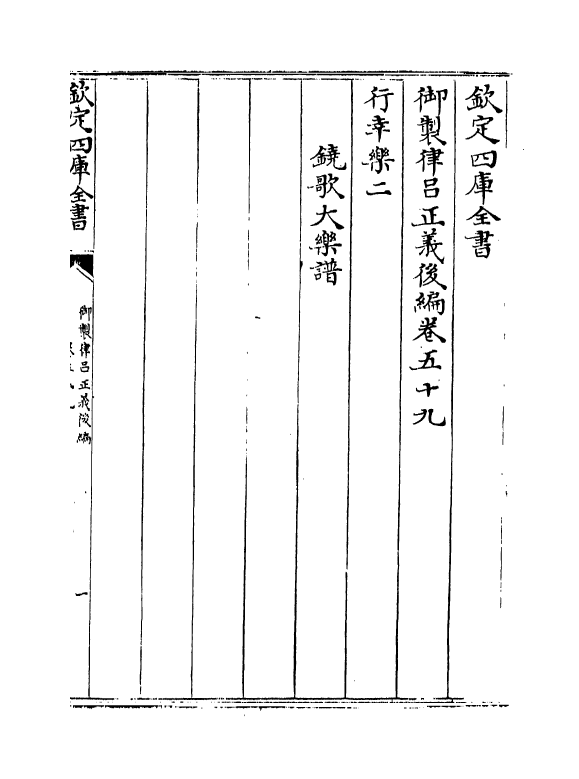 欽定四庫全書
御製律呂正義後編卷五十九
行幸樂二
鐃歌大樂譜
欽定四庫全書
御製律呂正義後編
一